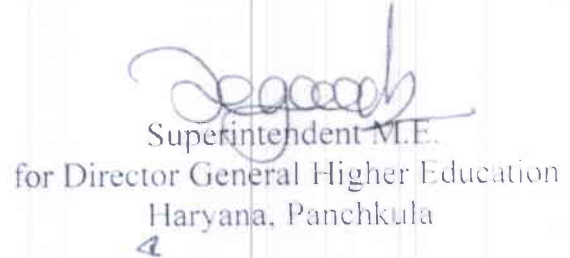 Superintendent M.E.
for Director General Higher Education
Haryana, Panchkula